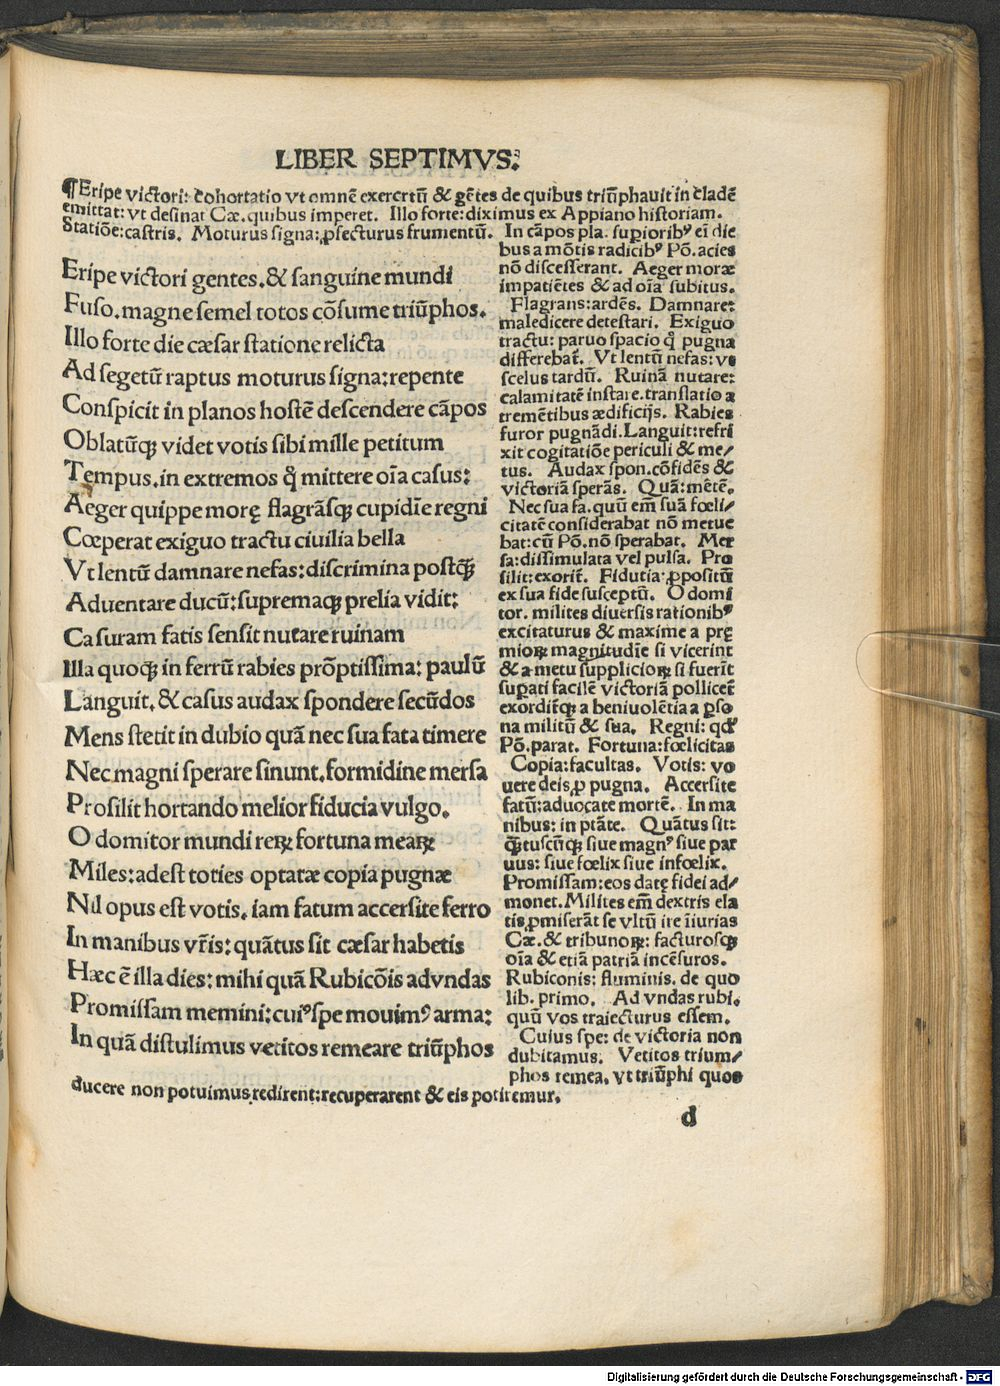 LIBER SEPTIMVS.
¶Eripe victori: cohortatio vt omnē exercitū & gētes de quibus triūphauit in cladē
emittat: vt desinat Cæ. quibus imperet. Illo forte: diximus ex Appiano historiam.
Statiōe: castris. Moturus signa: ꝓfecturus frumentū. In cāpos pla. suꝑioribꝰ ei die
Eripe victori gentes, & sanguine mundi
Fuso, magne semel totos cōsume triūphos.
Illo forte die cæsar statione relicta
Ad segetū raptus moturus signa: repente
Conspicit in planos hostē descendere cāpos
Oblatūꝙ videt votis sibi mille petitum
Tempus, in extremos ꝙ mittere oīa casus:
Aeger quippe morę flagrāsꝙ cupidīe regni
Cœperat exiguo tractu ciuilia bella
Vt lentū damnare nefas: discrimina postꝙ
Aduentare ducū: supremaꝙ prelia vidit:
Casuram fatis sensit nutare ruinam
Illa quoꝙ in ferrū rabies prōptissima: paulū
Languit, & casus audax spondere secūdos
Mens stetit in dubio quā nec sua fata timere
Nec magni sperare sinunt, formidine mersa
Prosilit hortando melior fiducia vulgo.
O domitor mundi reꝝ fortuna meaꝝ
Miles: adest toties optatæ copia pugnæ
Nil opus est votis, iam fatum accersite ferro
In manibus vr̄is: quātus sit cæsar habetis
Hæc ē illa dies: mihi quā Rubicōis ad vndas
Promissam memini: cuiꝰ spe mouimꝰ arma:
In quā distulimus vetitos remeare triūphos
bus a mōtis radicibꝰ Pō. acies
nō discesserant. Aeger moræ
impatiētes & ad oīa subitus.
Flagrans: ardēs. Damnare:
maledicere detestari. Exiguo
tractu: paruo spacio q̄ pugna
differebat̄. Vt lentū nefas: vt
scelus tardū. Ruinā nutare:
calamitatē instare. translatio a
tremētibus ædificijs. Rabies
furor pugnādi. Languit: refri
xit cogitatiōe periculi & me/
tus. Audax spon. cōfidēs &
victoriā sperās. Quā: mētē.
Nec sua fa. quū em̄ suā fœli/
citatē considerabat nō metue
bat: cū Pō. nō sperabat. Mer
sa: dissimulata vel pulsa. Pro
silit: exorit̄. Fidutia: ꝓpositū
ex sua fide susceptū. O domi
tor. milites diuersis rationibꝰ
excitaturus & maxime a prę
mioꝝ magnitudīe si vicerint
& a metu supplicioꝝ si fuerīt
suꝑati facilē victoriā pollicet̄
exorditꝙ a beniuolētia a ꝑso
na militū & sua. Regni: qđ
Pō. parat. Fortuna: fœlicitas
Copia: facultas. Votis: vo
uere deis ꝓ pugna. Accersite
fatū: aduocate mortē. In ma
nibus: in ptāte. Quātus sit:
ꝙtuscūꝙ siue magnꝰ siue par
uus: siue fœlix siue infœlix.
Promissam: eos datę fidei ad/
monet. Milites em̄ dextris ela
tis ꝓmiserāt se vltū ire īiurias
Cæ. & tribunoꝝ: facturosꝙ
oīa & etiā patriā incēsuros.
Rubiconis: fluminis. de quo
lib. primo. Ad vndas rubi.
quū vos traiecturus essem.
Cuius spe: de victoria non
dubitamus. Vetitos trium/
phos remea. vt triūphi quos
ducere non potuimus redirent: recuperarent & eis potiremur.
d
Digitalisierung gefördert durch die Deutsche Forschungsgemeinschaft - DFG